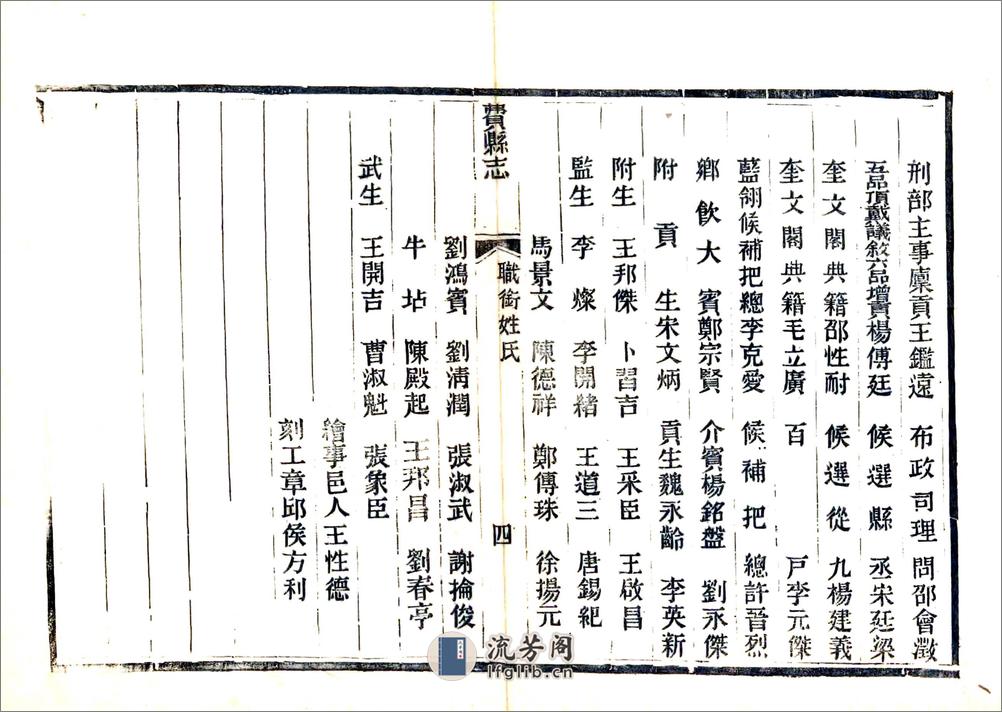 刑部主事廩貢王鑑遠 布政司理問邵會澂
五品頂戴議敘六品增貢楊傅廷 候選縣丞宋廷梁
奎文閣典籍邵性耐 候選從九楊建義
奎文閣典籍毛立廣 百戸李元傑
藍翎候補把總李克愛 候補把總許晉烈
鄉飲大賓鄭宗賢 介賓楊銘盤 劉永傑
附貢生宋文炳 貢生魏永齡 李英新
附生 王邦傑 卜習吉 王采臣 王啟昌
監生 李燦 李開緒 王道三 唐錫紀
馬景文 陳德祥 鄭傳珠 徐揚元
費縣志 職銜姓氏 四
劉鴻賓 劉清潤 張淑武 謝掄俊
牛坫 陳殿起 王邦昌 劉春亭
武生 王開吉 曹淑魁 張象臣
繪事邑人王性德
刻工章邱侯方利
流芳阁
lfglib.cn